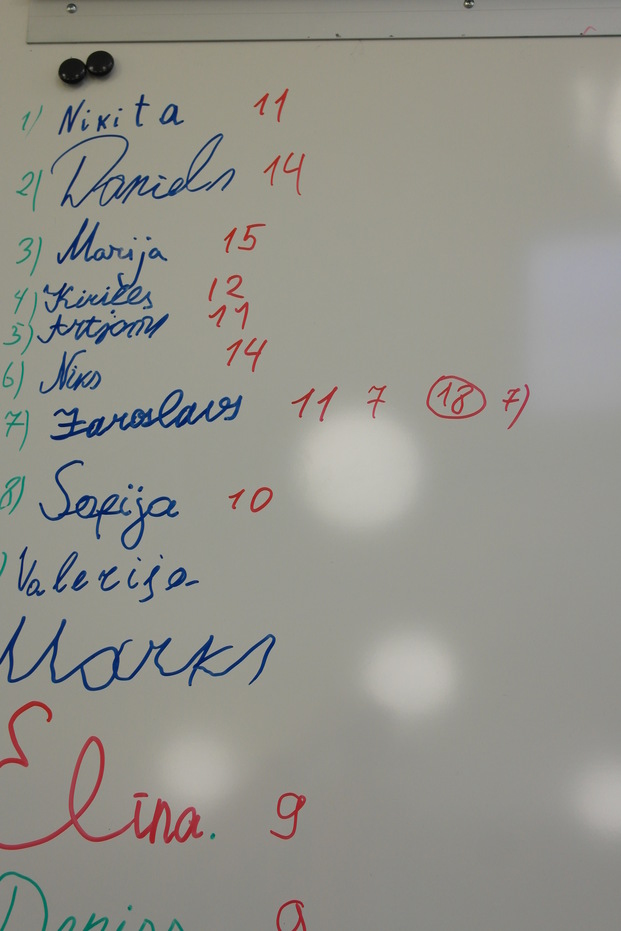 1) Nikita 11
2) Daniels 14
3) Marija 15
4) Kirills 12
5) Artjoms 11
6) Niks 14
7) Jaroslavs 11 7 18 7)
8) Sofija 10
) Valerija
Marks
Elīna. 9
Deniss 9